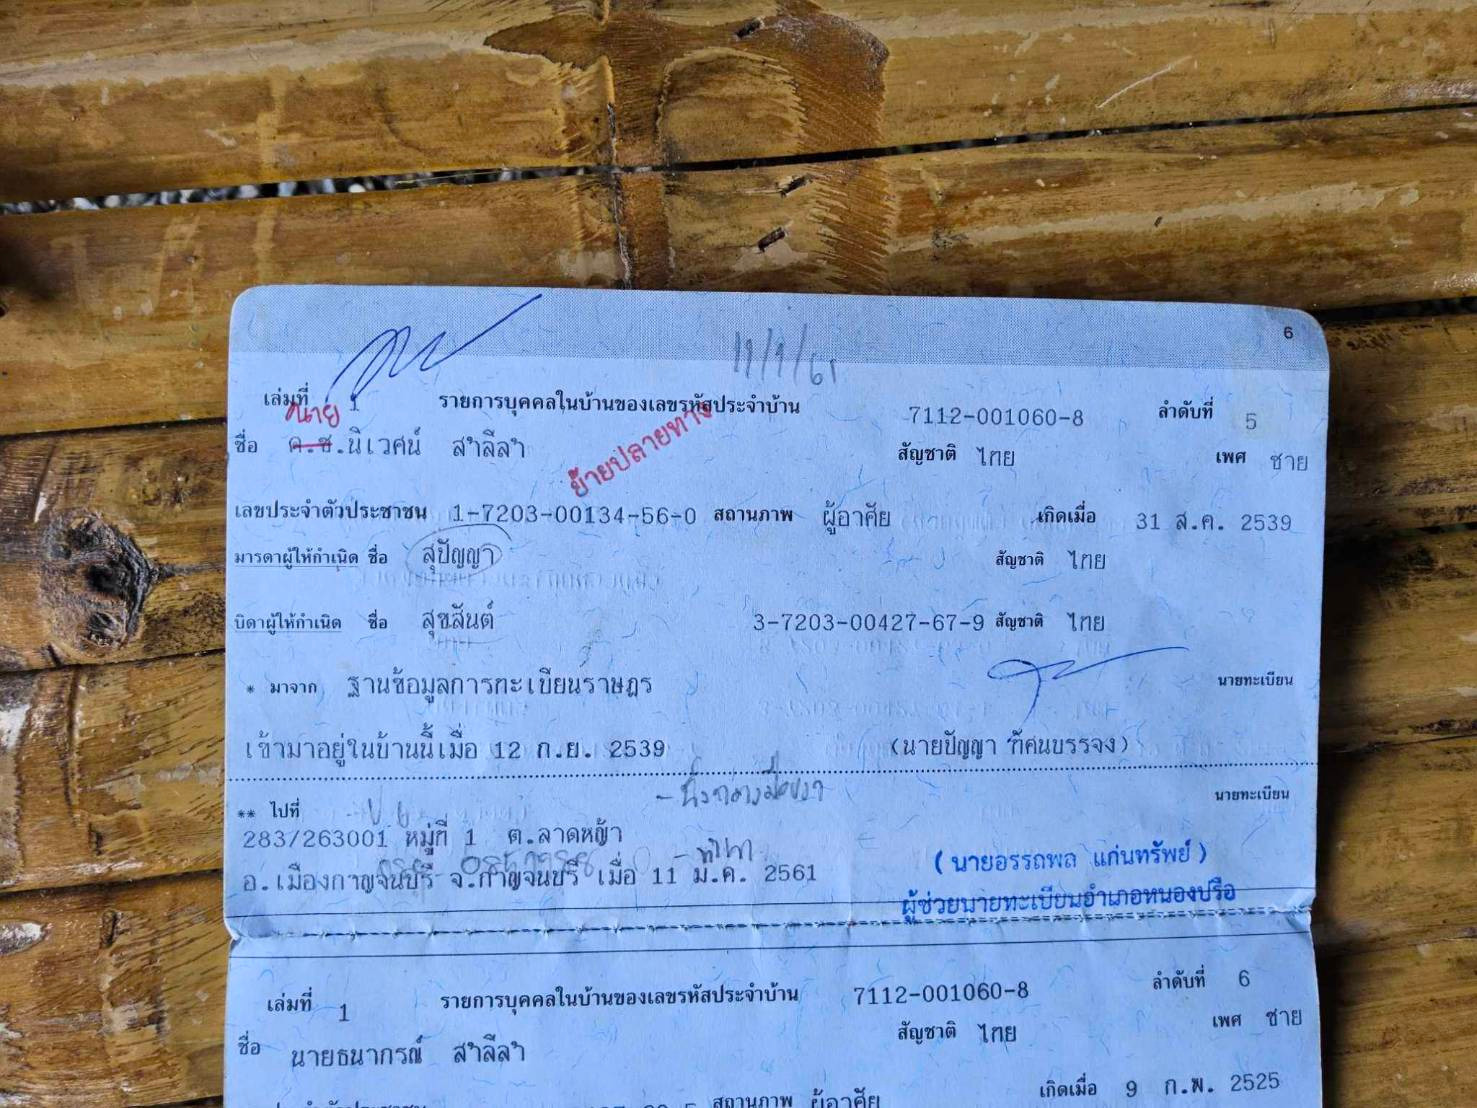 6
11/1/61
เล่มที่ 1 รายการบุคคลในบ้านของเลขรหัสประจำบ้าน 7112-001060-8 ลำดับที่ 5
นาย
ชื่อ ด.ช.นิเวศน์ สำลีลำ สัญชาติ ไทย เพศ ชาย
ย้ายปลายทาง
เลขประจำตัวประชาชน 1-7203-00134-56-0 สถานภาพ ผู้อาศัย เกิดเมื่อ 31 ส.ค. 2539
มารดาผู้ให้กำเนิด ชื่อ สุปัญญา สัญชาติ ไทย
บิดาผู้ให้กำเนิด ชื่อ สุขสันต์ 3-7203-00427-67-9 สัญชาติ ไทย
* มาจาก ฐานข้อมูลการทะเบียนราษฎร นายทะเบียน
เข้ามาอยู่ในบ้านนี้เมื่อ 12 ก.ย. 2539 (นายปัญญา ทัศนบรรจง)
** ไปที่ นายทะเบียน
283/263001 หมู่ที่ 1 ต.ลาดหญ้า
อ.เมืองกาญจนบุรี จ.กาญจนบุรี เมื่อ 11 ม.ค. 2561
(นายอรรถพล แก่นทรัพย์)
ผู้ช่วยนายทะเบียนอำเภอหนองปรือ
เล่มที่ 1 รายการบุคคลในบ้านของเลขรหัสประจำบ้าน 7112-001060-8 ลำดับที่ 6
ชื่อ นายธนากรณ์ สำลีลำ สัญชาติ ไทย เพศ ชาย
สถานภาพ ผู้อาศัย เกิดเมื่อ 9 ก.พ. 2525